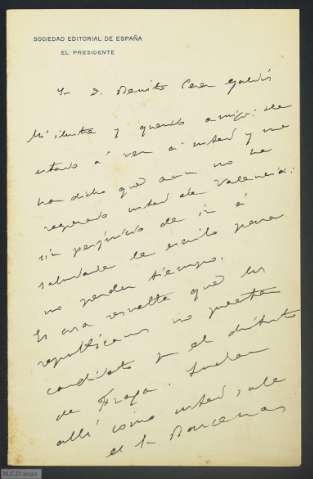 SOCIEDAD EDITORIAL DE ESPAÑA
EL PRESIDENTE
Sr. D. Benito Perez Galdós
Mi ilustre y querido amigo: He
estado á ver á usted y me
han dicho que aun no ha
regresado usted de Valencia:
sin perjuicio de ir á
saludarle le escribo para
no perder tiempo.
Es cosa resuelta que los
republicanos no presentan
candidato por el distrito
de Fraga. Luchan
allí como usted sabe
el Sr.